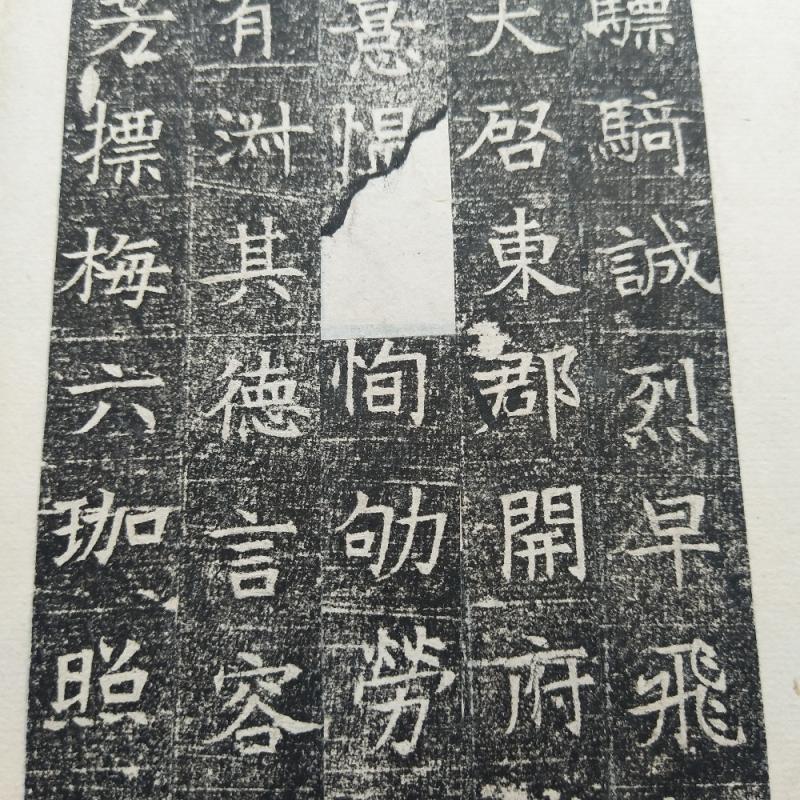 驃騎誠烈早飛
大啓東郡開府
憙恂劬勞
有淑其德言容
芳摽梅六珈照